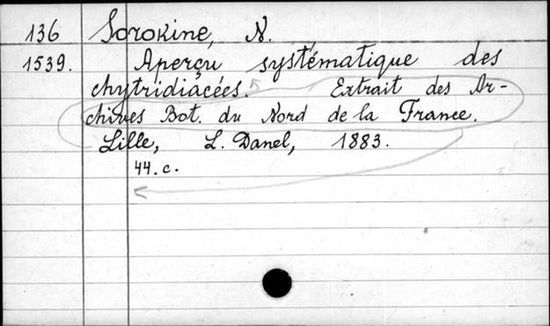 136 Sorokine, N.
1539. Aperçu systématique des
chytridiacées. Extrait des Ar-
chives Bot. du Nord de la France.
Lille, L. Danel, 1883.
44. c.